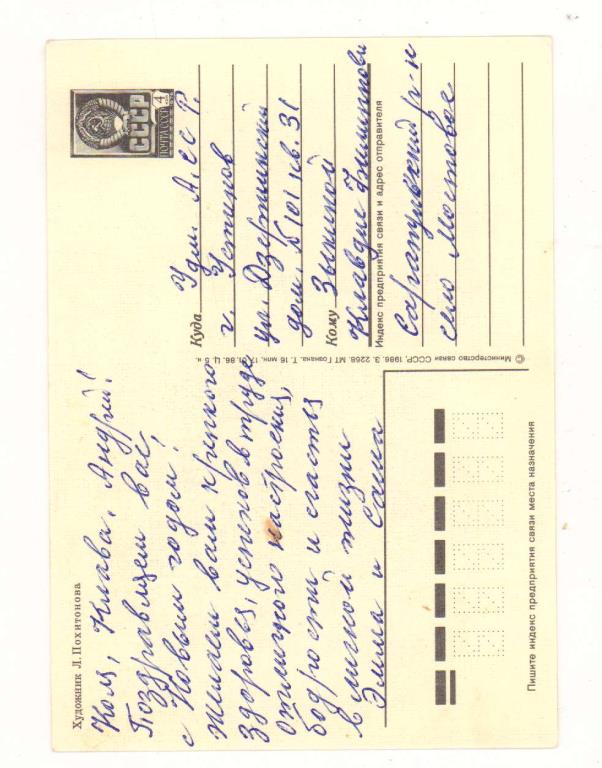 Художник Л. Похитонова
Коля, Клава, Андрей!
Поздравляем вас
с Новым годом!
Желаем вам крепкого
здоровья, успехов в труде
отличного настроения,
бодрости и счастья
в личной жизни
Эмма и Саша
© Министерство связи СССР, 1986. З. 2268. МТ Гознака. Т. 16 млн. 17. 01. 86. Ц. 5 к.
СССР
ПОЧТА СССР
4
Куда Удм. АССР.
г. Устинов
ул. Дзержинский
дом. N 101 кв. 31
Кому Зыкиной
Клавдие
Индекс предприятия связи и адрес отправителя
Сарапульский р-н
село Мостовое
Пишите индекс предприятия связи места назначения